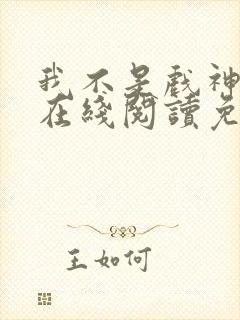 我不是戲神
在綫閱讀免
王如何